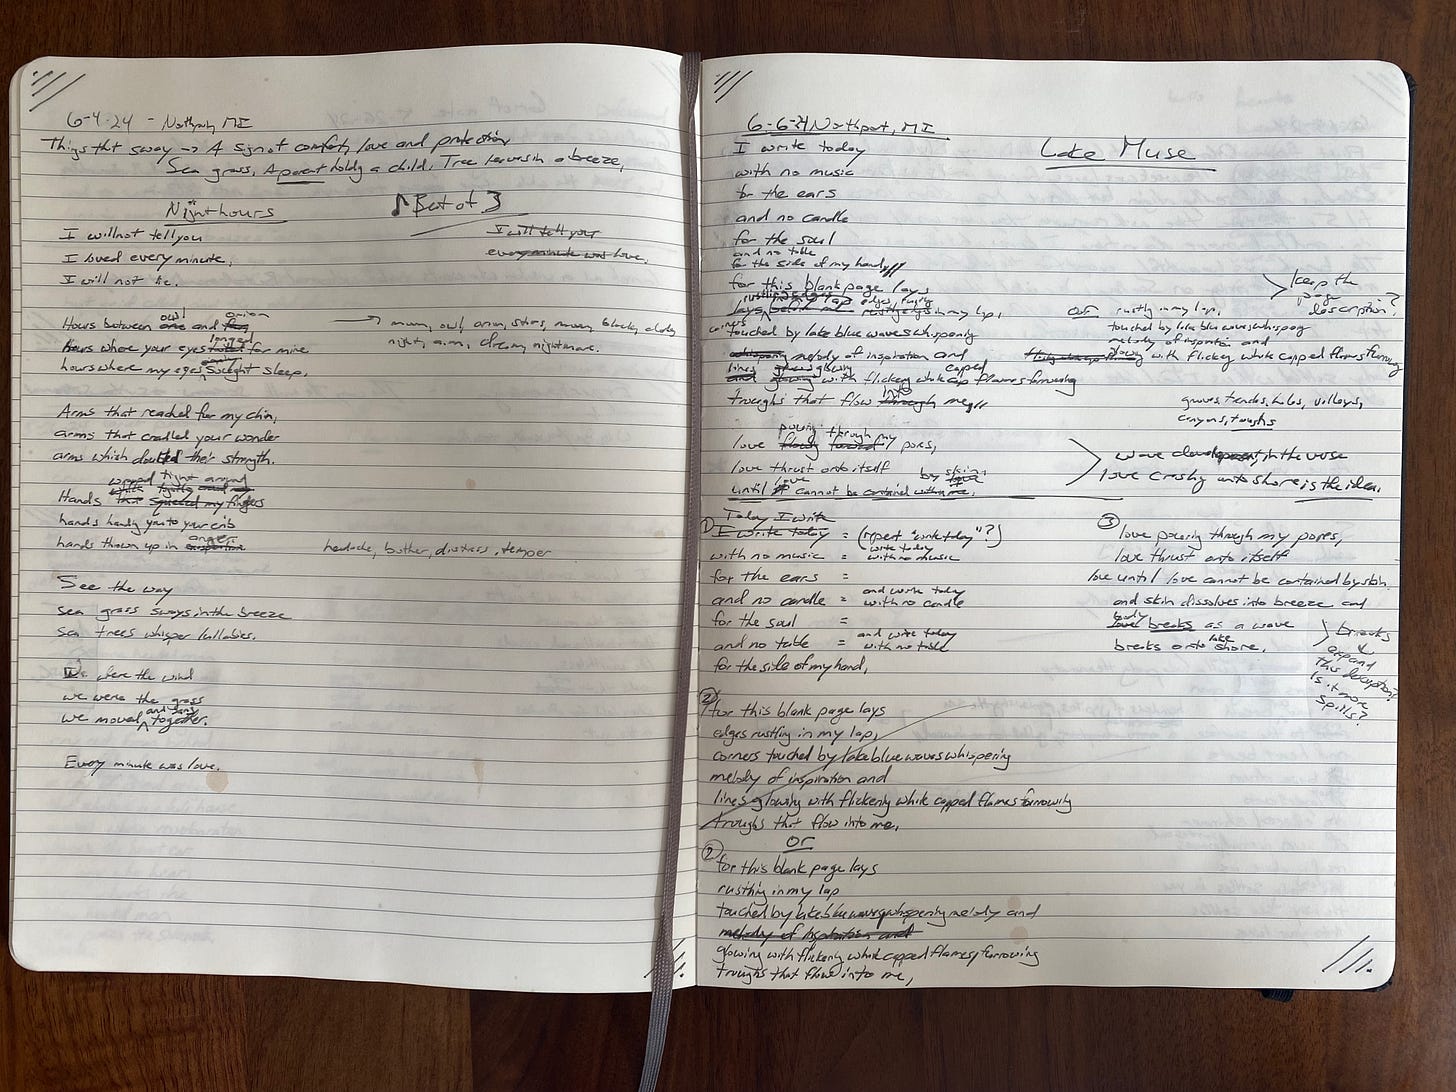 6-4-24 - Northport, MI
Things that sway -> A sign of comfort, love and protection
Sea grass, A parent holding a child. Tree leaves in a breeze,
Night hours
I will not tell you
I loved every minute,
I will not lie.
[Best of 3]
I will tell you
every minute was love.
owl orion
Hours between one and
longed
Hours where your eyes for mine
hours where my eyes sought sleep.
moon, owl, orion, stars, moon, black, dark,
night, dream, nightmare.
Arms that reached for my chin,
arms that cradled your wonder
arms which doubted their strength.
wrapped tight around
Hands my fingers
hands handing you to your crib
anger
hands thrown up in
headache, bother, distress, temper
See the way
sea grass sways in the breeze
sea trees whisper lullabies.
were the wind
we were the grass
and sang
we moved together.
Every minute was love.
6-6-24 Northport, MI
Lake Muse
I write today
with no music
for the ears
and no candle
for the soul
and no table
for the side of my hand,
for this blank page lays
rustling edges
edges rustling in my lap,
corners touched by lake blue waves whispering
whispering melody of inspiration and
lines glowing capped
and glowing with flickering white cap flames furrowing
into
troughs that flow through me
keep the
page
description?
OR rustling in my lap,
touched by lake blue waves whisperg
melody of inspiration and
glowing with flickering white capped flames furrowing
groves, trenches, hills, valleys,
canyons, troughs
pouring through my
love flowing forward pores,
love thrust onto itself
love by skin
until it cannot be contained within me.
wave development, in the verse
love crashing onto shore is the idea.
Today I write
① I write today = (repeat "write today"?)
write today
with no music = with no music
for the ears =
and write today
and no candle = with no candle
for the soul =
and write today
and no table = with no table
for the side of my hand,
② for this blank page lays
edges rustling in my lap,
corners touched by lake blue waves whispering
melody of inspiration and
lines glowing with flickering white capped flames furrowing
troughs that flow into me,
or
② for this blank page lays
rustling in my lap
touched by lake blue waves whispering melody and
melody of inspiration and
glowing with flickering white capped flames furrowing
troughs that flow into me,
③ love pouring through my pores,
love thrust onto itself
love until love cannot be contained by skin
and skin dissolves into breeze and
body
love breaks as a wave
lake
breaks onto shore,
breaks
expand
This description?
Is it more
Spills?